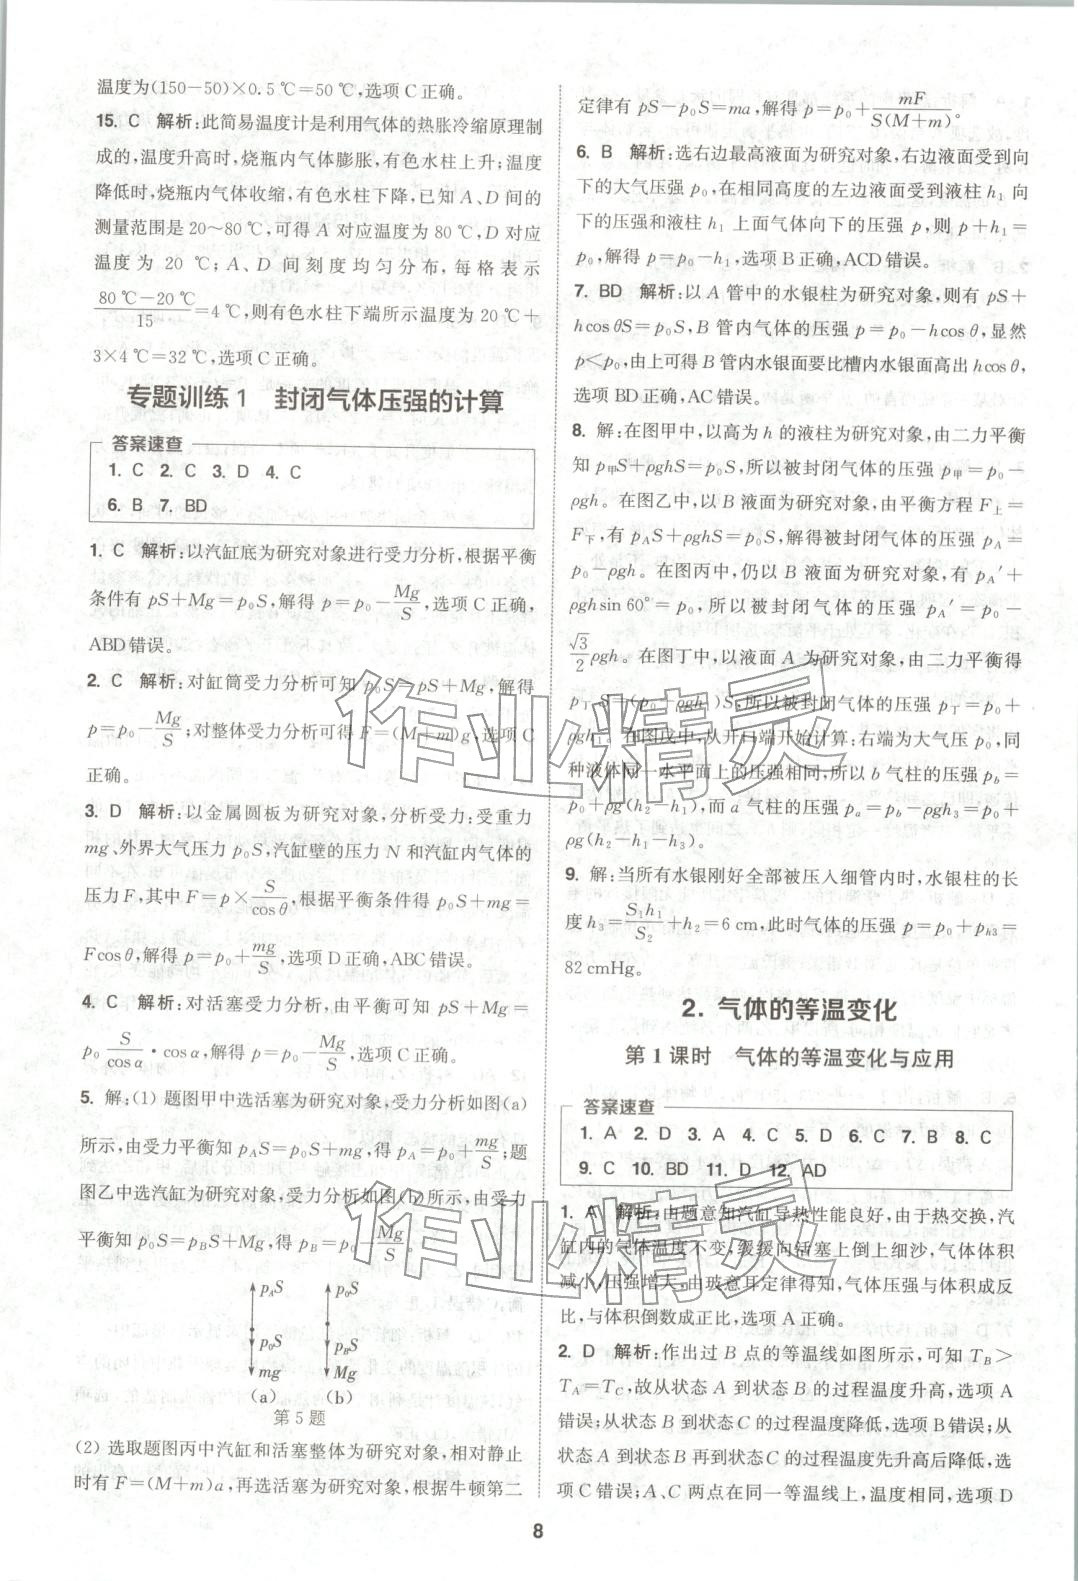 温度为(150－50)×0.5 ℃＝50 ℃,选项 C 正确。
15. C 解析:此简易温度计是利用气体的热胀冷缩原理制
成的,温度升高时,烧瓶内气体膨胀,有色水柱上升;温度
降低时,烧瓶内气体收缩,有色水柱下降,已知 A、D 间的
测量范围是 20~80 ℃,可得 A 对应温度为 80 ℃,D 对应
温度为 20 ℃;A、D 间刻度均匀分布,每格表示
(80 ℃－20 ℃)/15＝4 ℃,则有色水柱下端所示温度为 20 ℃＋
3×4 ℃＝32 ℃,选项 C 正确。
专题训练 1 封闭气体压强的计算
答案速查
1. C 2. C 3. D 4. C
6. B 7. BD
1. C 解析:以汽缸底为研究对象进行受力分析,根据平衡
条件有 pS＋Mg＝p₀S,解得 p＝p₀－Mg/S,选项 C 正确,
ABD 错误。
2. C 解析:对缸筒受力分析可知 p₀S＝pS＋Mg,解得
p＝p₀－Mg/S;对整体受力分析可得 F＝(M＋m)g,选项 C
正确。
3. D 解析:以金属圆板为研究对象,分析受力:受重力
mg、外界大气压力 p₀S,汽缸壁的压力 N 和汽缸内气体的
压力 F,其中 F＝p×S/cosθ,根据平衡条件得 p₀S＋mg＝
Fcosθ,解得 p＝p₀＋mg/S,选项 D 正确,ABC 错误。
4. C 解析:对活塞受力分析,由平衡可知 pS＋Mg＝
p₀ S/cosα·cosα,解得 p＝p₀－Mg/S,选项 C 正确。
5. 解:(1) 题图甲中选活塞为研究对象,受力分析如图(a)
所示,由受力平衡知 p_AS＝p₀S＋mg,得 p_A＝p₀＋mg/S;题
图乙中选汽缸为研究对象,受力分析如图(b)所示,由受力
平衡知 p₀S＝p_BS＋Mg,得 p_B＝p₀－Mg/S。
p_AS p₀S
p₀S p_BS
mg Mg
(a) (b)
第 5 题
(2) 选取题图丙中汽缸和活塞整体为研究对象,相对静止
时有 F＝(M＋m)a,再选活塞为研究对象,根据牛顿第二
定律有 pS－p₀S＝ma,解得 p＝p₀＋mF/S(M＋m)。
6. B 解析:选右边最高液面为研究对象,右边液面受到向
下的大气压强 p₀,在相同高度的左边液面受到液柱 h₁ 向
下的压强和液柱 h₁ 上面气体向下的压强 p,则 p＋h₁＝
p₀,解得 p＝p₀－h₁,选项 B 正确,ACD 错误。
7. BD 解析:以 A 管中的水银柱为研究对象,则有 pS＋
hcosθS＝p₀S,B 管内气体的压强 p＝p₀－hcosθ,显然
p<p₀,由上可得 B 管内水银面要比槽内水银面高出 hcosθ,
选项 BD 正确,AC 错误。
8. 解:在图甲中,以高为 h 的液柱为研究对象,由二力平衡
知 p甲S＋ρghS＝p₀S,所以被封闭气体的压强 p甲＝p₀－
ρgh。在图乙中,以 B 液面为研究对象,由平衡方程 F上＝
F下,有 p_AS＋ρghS＝p₀S,解得被封闭气体的压强 p_A＝
p₀－ρgh。在图丙中,仍以 B 液面为研究对象,有 p_A′＋
ρghsin 60°＝p₀,所以被封闭气体的压强 p_A′＝p₀－
√3/2 ρgh。在图丁中,以液面 A 为研究对象,由二力平衡得
p丁S＝(p₀＋ρgh₁)S,所以被封闭气体的压强 p丁＝p₀＋
ρgh₁。在图戊中,从开口端开始计算:右端为大气压 p₀,同
种液体同一水平面上的压强相同,所以 b 气柱的压强 p_b＝
p₀＋ρg(h₂－h₁),而 a 气柱的压强 p_a＝p_b－ρgh₃＝p₀＋
ρg(h₂－h₁－h₃)。
9. 解:当所有水银刚好全部被压入细管内时,水银柱的长
度 h₃＝S₁h₁/S₂＋h₂＝6 cm,此时气体的压强 p＝p₀＋p_h3＝
82 cmHg。
2. 气体的等温变化
第 1 课时 气体的等温变化与应用
答案速查
1. A 2. D 3. A 4. C 5. D 6. C 7. B 8. C
9. C 10. BD 11. D 12. AD
1. A 解析:由题意知汽缸导热性能良好,由于热交换,汽
缸内的气体温度不变,缓缓向活塞上倒上细沙,气体体积
减小,压强增大,由玻意耳定律得知,气体压强与体积成反
比,与体积倒数成正比,选项 A 正确。
2. D 解析:作出过 B 点的等温线如图所示,可知 T_B>
T_A＝T_C,故从状态 A 到状态 B 的过程温度升高,选项 A
错误;从状态 B 到状态 C 的过程温度降低,选项 B 错误;从
状态 A 到状态 B 再到状态 C 的过程温度先升高后降低,选
项 C 错误;A、C 两点在同一等温线上,温度相同,选项 D
8
作业精灵
作业精灵